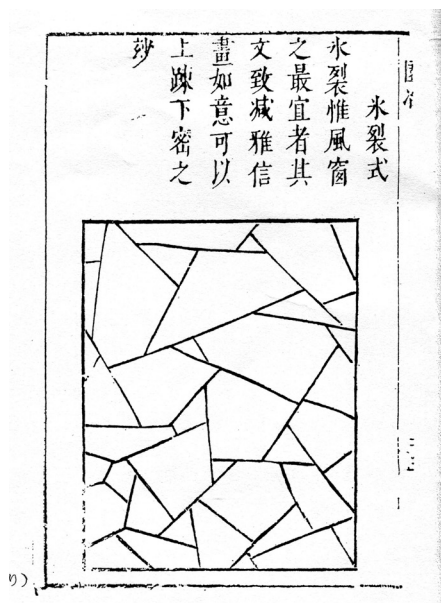 氷裂式
氷裂惟風窗
之最宜者其
文致减雅信
畫如意可以
上疎下密之
玅
り)